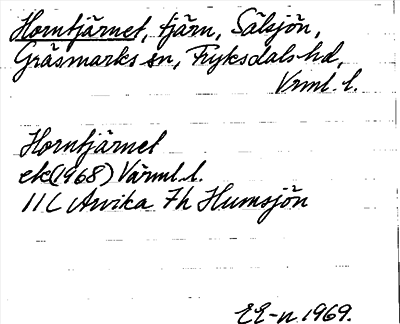 Horntjärnet, tjärn, Sälsjön,
Gräsmarks sn, Fryksdals hd,
Vrml. l.
Horntjärnet
ek(1968) Värml. l.
11C Arvika 7h Humsjön
EE-n 1969.